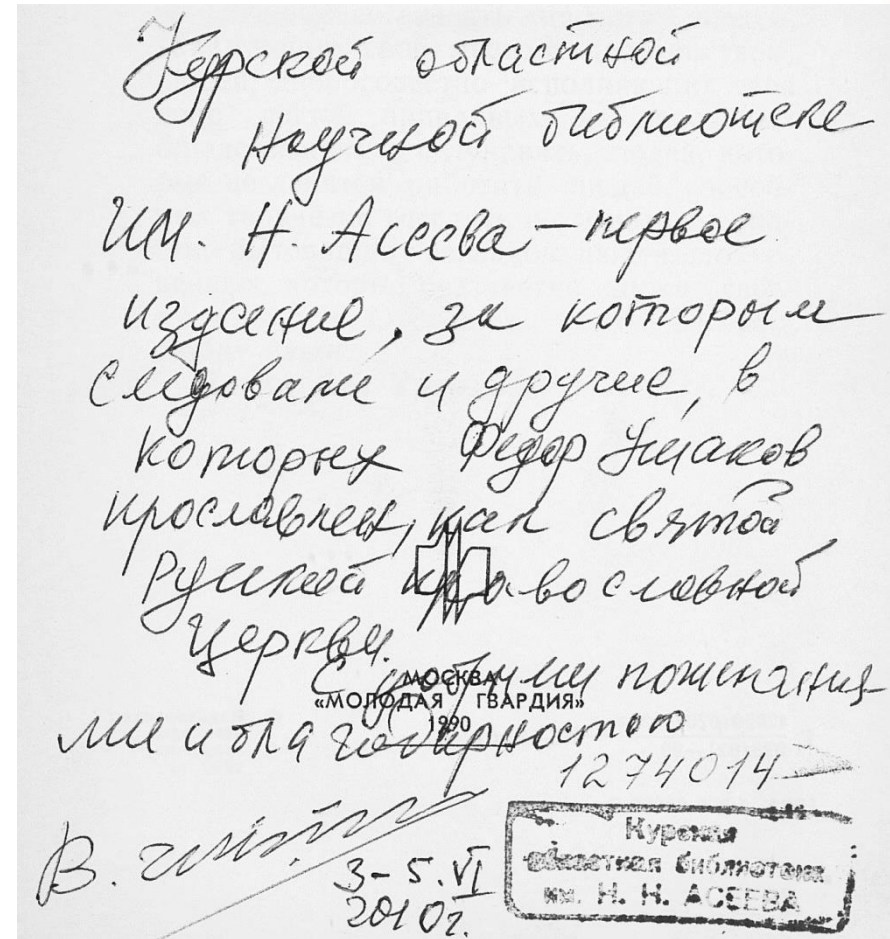 Курской областной
научной библиотеке
им. Н. Асеева – первое
издание, за которым
следовали и другие, в
которых Федор Ушаков
прославлен, как святой
Русской православной
Церкви.
С добрыми пожелания-
МОСКВА
«МОЛОДАЯ ГВАРДИЯ»
1990
ми и благодарностью
1274014
В.
3-5.VI
2010г.
Курская
областная библиотека
им. Н. Н. АСЕЕВА